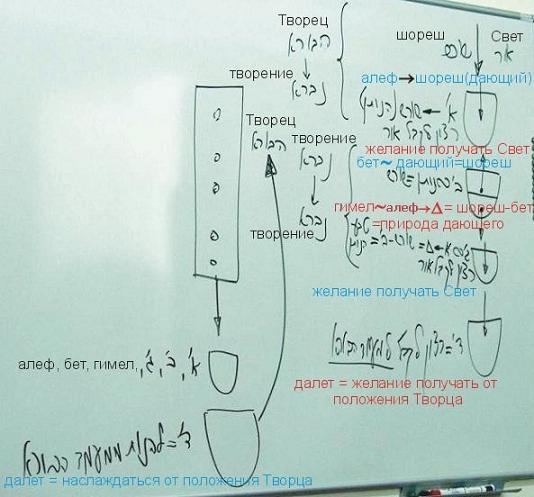 Творец
הבורא
творение
נברא
шореш
שורש
Свет
אור
алеф→шореш(дающий)
א' ← שורש (הנותן)
רצון לקבל אור
желание получать Свет
Творец
הבורא
творение
נברא
бет~ дающий=шореш
ב' ~ נותן = שורש
гимел~алеф→Δ= шореш-бет
=природа дающего
творение
נברא
טבע
הנותן
רצון לקבל אור
желание получать Свет
ד' = רצון לקבל
далет = желание получать от
положения Творца
алеф, бет, гимел,
א', ב', ג',
ד' = להנות ממעמד הבורא
далет = наслаждаться от положения Творца